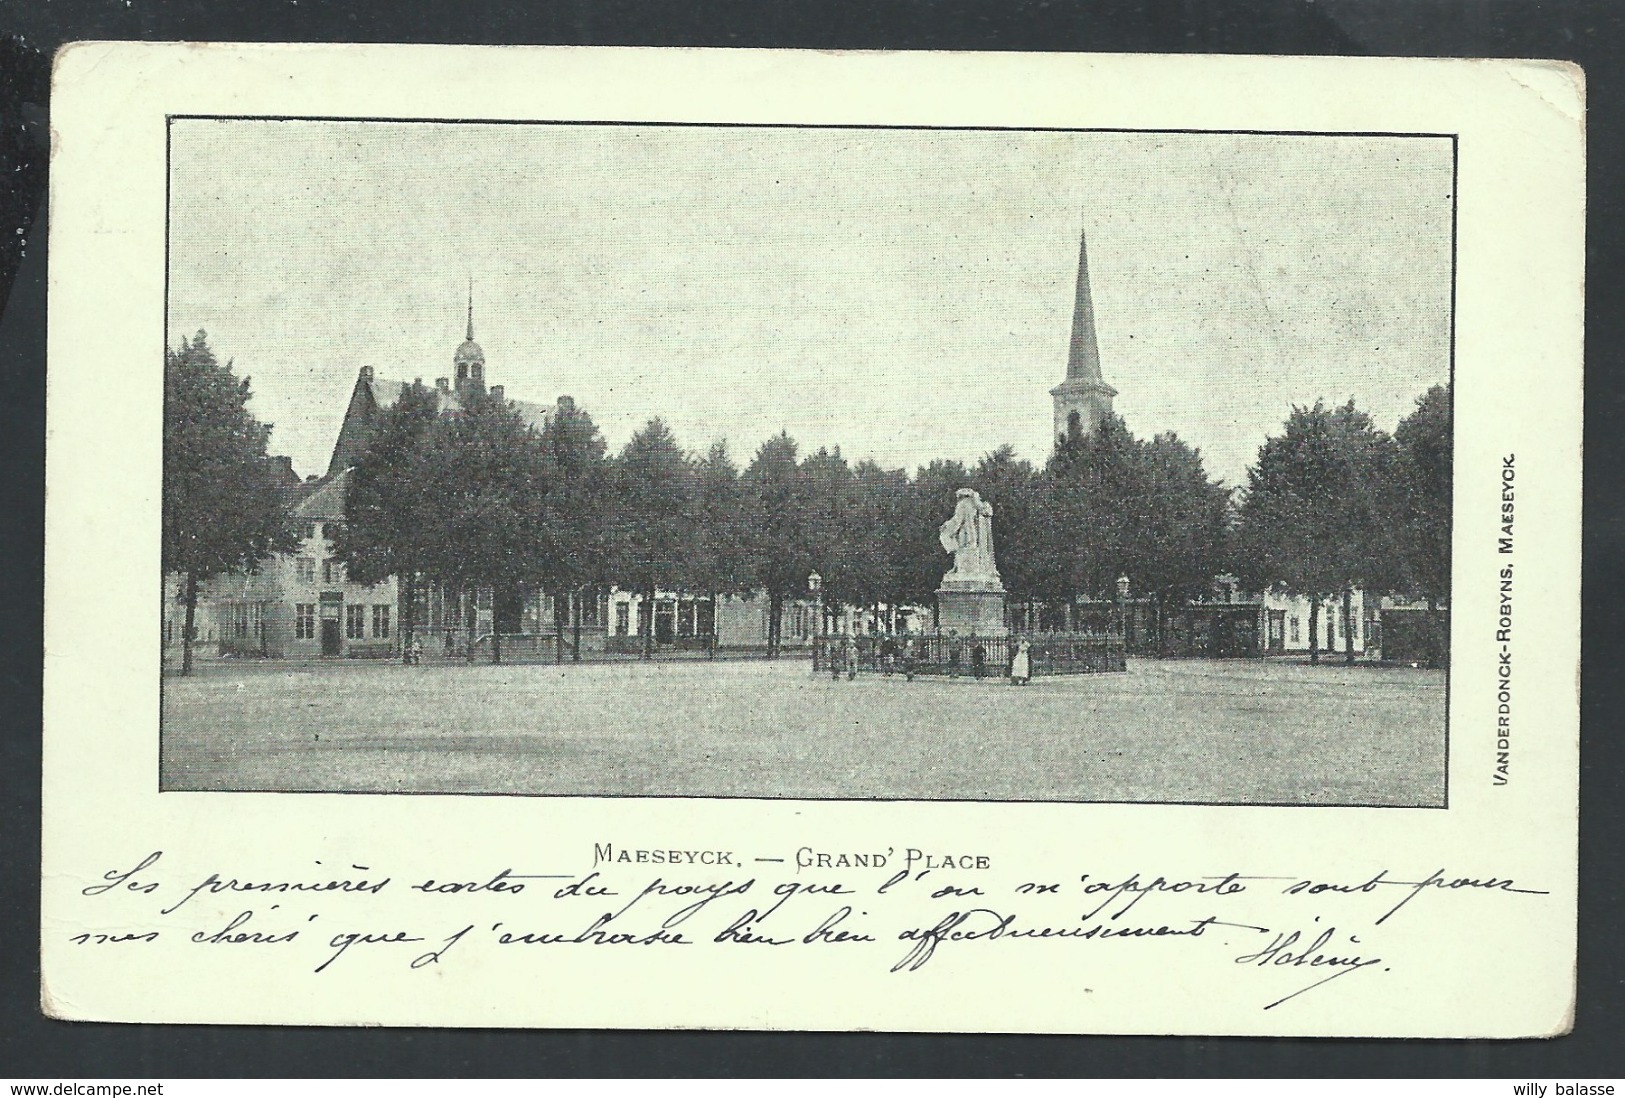 VANDERDONCK-ROBYNS, MAESEYCK.
MAESEYCK. — GRAND' PLACE
Les premières cartes du pays que l'on m'apporte sont pour
mes chéris que j'embrasse bien bien affectueusement.
Hélène.
delcampe.net
willy balasse